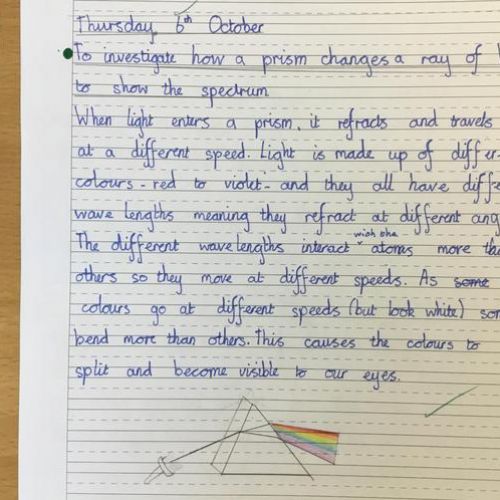 Thursday 6th October
To investigate how a prism changes a ray of
to show the spectrum
When light enters a prism, it refracts and travels
at a different speed. Light is made up of differ-
colours - red to violet - and they all have diffe
wave lengths meaning they refract at different ang
The different wave lengths interact with the atoms more tha
others so they move at different speeds. As some
colours go at different speeds (but look white) som
bend more than others. This causes the colours to
split and become visible to our eyes.